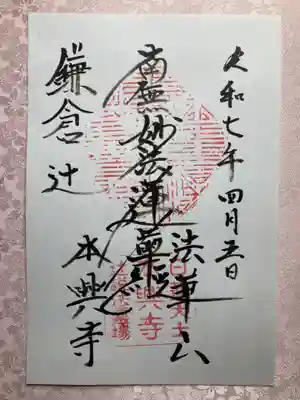 令和七年 四月五日
法華山
南無妙法蓮華経
鎌倉辻
本興寺